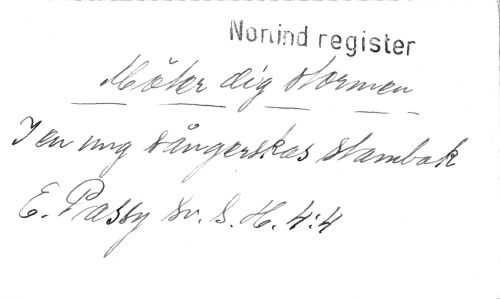 Nonind register
Möter dig stormen
I en ung sångerskas stambok
E. Passy Sv. S. H. 4:4